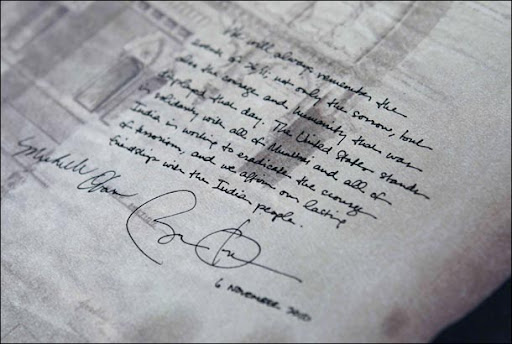 We will always remember the
events of 26/11, not only the sorrow, but
also the courage and humanity that was
displayed that day. The United States stands
in solidarity with all of Mumbai and all of
India in working to eradicate the scourge
of terrorism, and we affirm our lasting
friendship with the Indian people.
Michelle Obama
6 NOVEMBER 2010